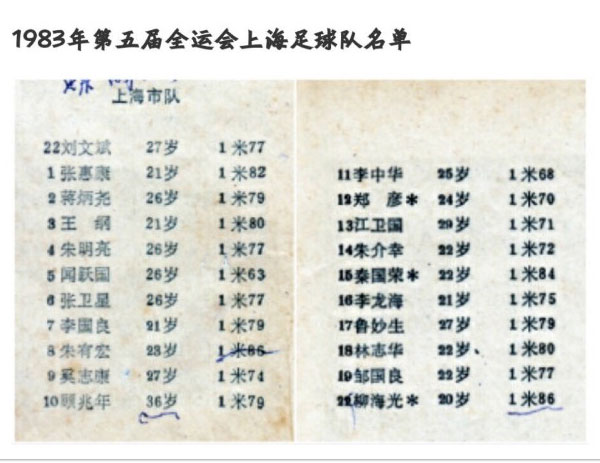 1983年第五届全运会上海足球队名单
上海市队
22刘文斌 27岁 1米77
1张惠康 21岁 1米82
2蒋炳尧 26岁 1米79
3王 纲 21岁 1米80
4朱明亮 26岁 1米77
5闻跃国 26岁 1米63
6张卫星 26岁 1米77
7李国良 21岁 1米79
8朱有宏 23岁 1米86
9奚志康 27岁 1米74
10顾兆年 36岁 1米79
11李中华 25岁 1米68
12郑 彦* 24岁 1米70
13江卫国 29岁 1米71
14朱介幸 22岁 1米72
15秦国荣* 22岁 1米84
16李龙海 21岁 1米75
17鲁妙生 27岁 1米79
18林志华 22岁 1米80
19邹国良 22岁 1米77
柳海光* 20岁 1米86